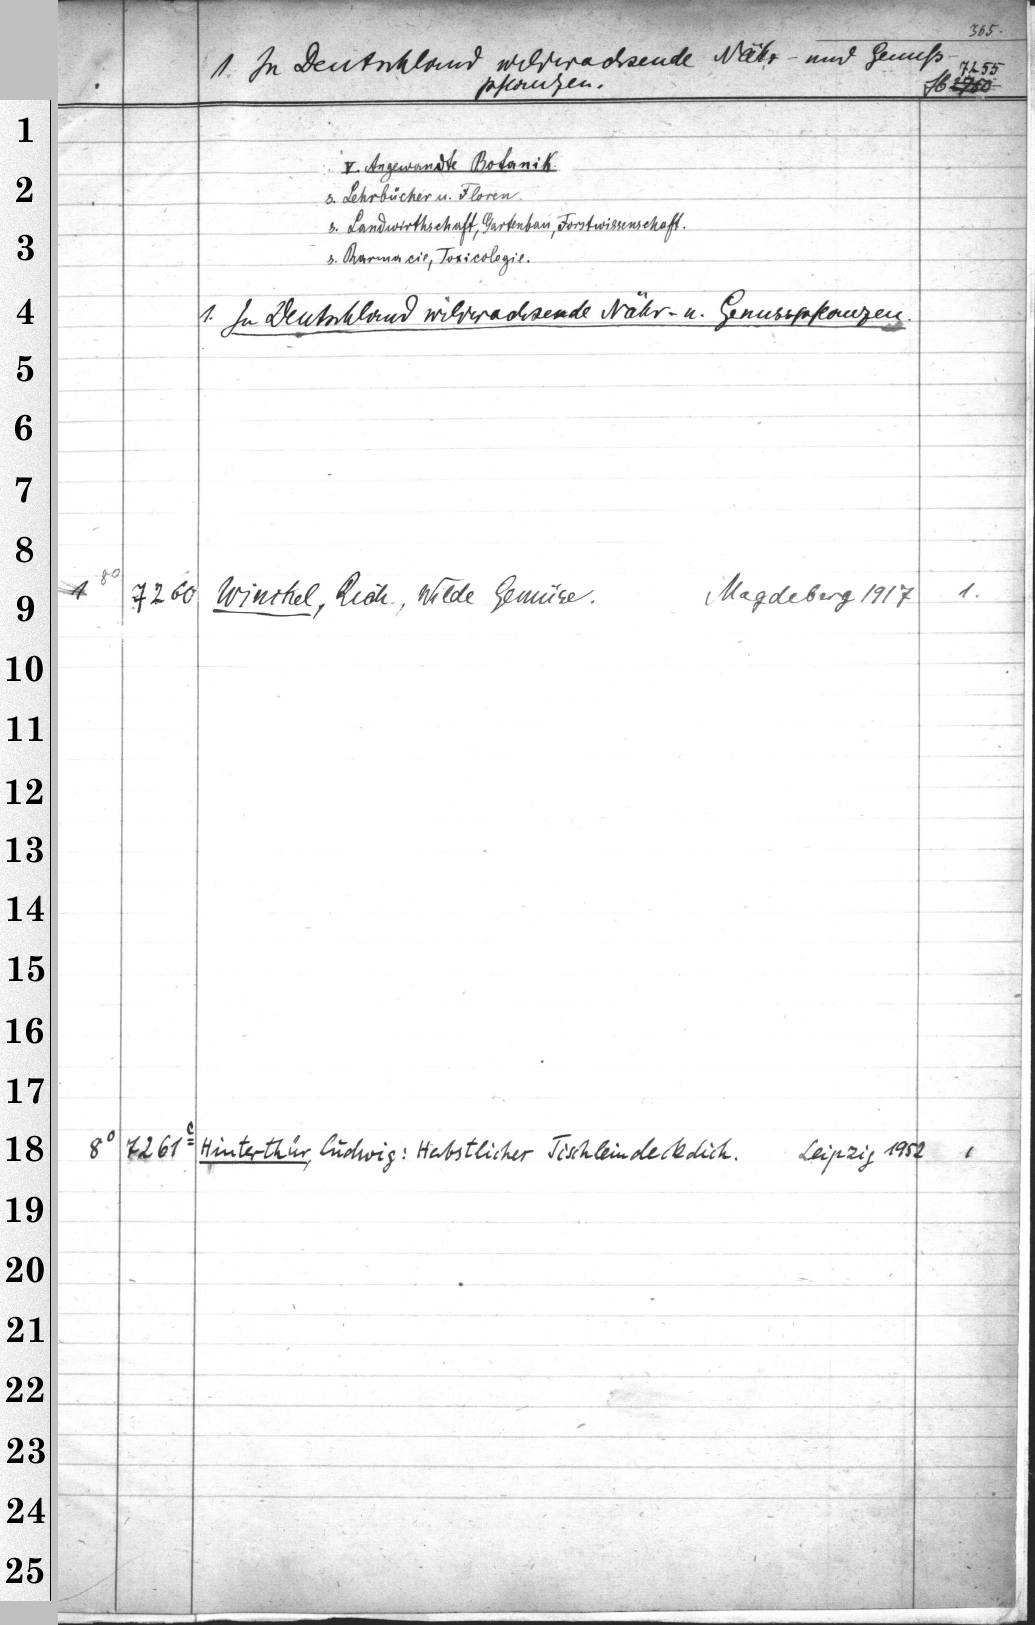 365.
1. In Deutschland wildwachsende Nähr- und Genuß-
pflanzen.
7255
2750
V. Angewandte Botanik
s. Lehrbücher u. Floren.
s. Landwirthschaft, Gartenbau, Forstwissenschaft.
s. Pharmacie, Toxicologie.
1. In Deutschland wildwachsende Nähr- u. Genusspflanzen.
4 8° 7260 Winckel, Rich., Wilde Gemüse. Magdeburg 1917 1.
8° 7261 c Hinterthür, Ludwig: Herbstlicher Tischleindeckdich. Leipzig 1952 1
1
2
3
4
5
6
7
8
9
10
11
12
13
14
15
16
17
18
19
20
21
22
23
24
25